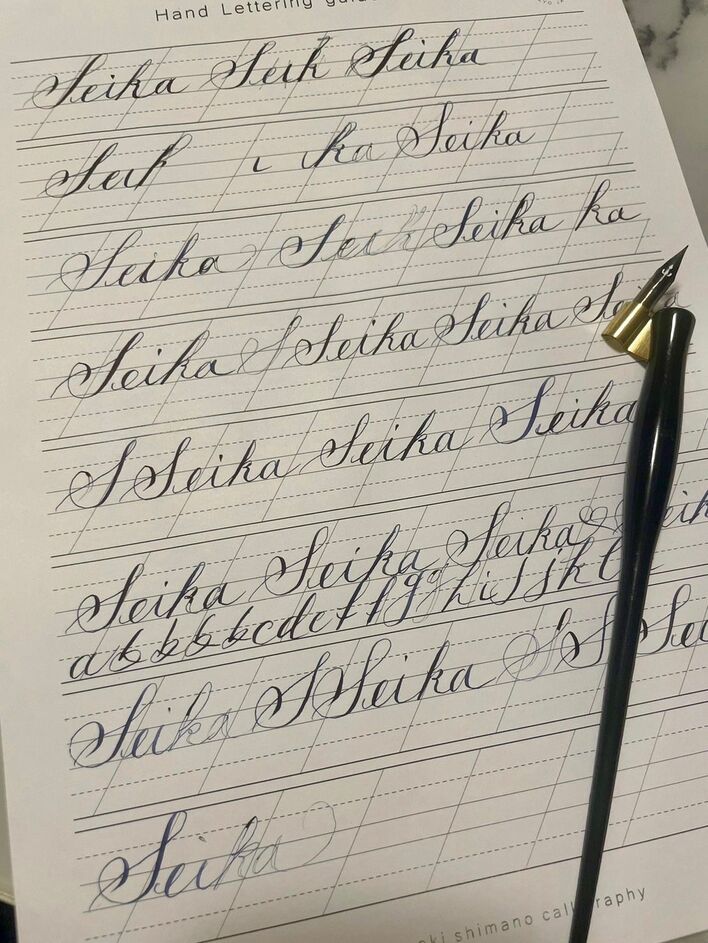 Hand Lettering
Seika Seik Seika
Seik ı ka Seika
Seika Sei Seika ka
Seika S Seika Seika
S Seika Seika Seika
Seika Seika Seika
a b b b b c d e f f g g h i j j k l
Seika S Seika S S Sei
Seika
shimano calligraphy